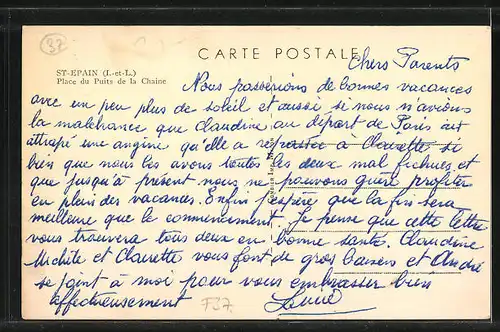 37
CARTE POSTALE
ST-EPAIN (I.-et-L.)
Place du Puits de la Chaine
Chers Parents
Nous passerions de bonnes vacances
avec un peu plus de soleil et aussi si nous n'avions
la malchance que Claudine au départ de Paris ait
attrapé une angine qu'elle a repassée à Clairette si
bien que nous les avons toutes les deux mal fichues et
que jusqu'à présent nous ne pouvons guère profiter
en plein des vacances. Enfin j'espère que la fin sera
meilleure que le commencement. Je pense que cette lettre
vous trouvera tous deux en bonne santé. Claudine
et Clairette vous font de gros baisers et André
se joint à moi pour vous embrasser bien
affectueusement
F37